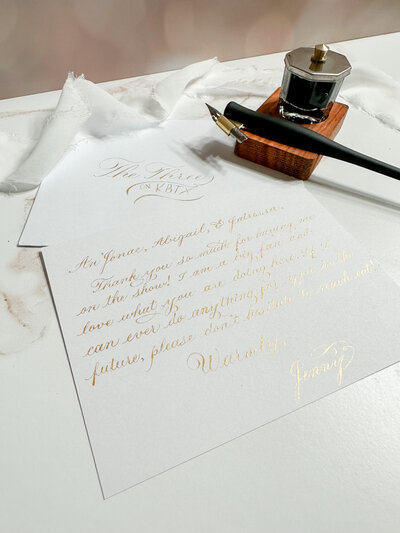 The Three
ON KBTX
An'Jonae, Abigail, &
Thank you so much for having me
on the show! I am a big fan and
love what you are doing here. If I
can ever do anything for you in the
future, please don't hesitate to reach out!
Warmly,
Jenny